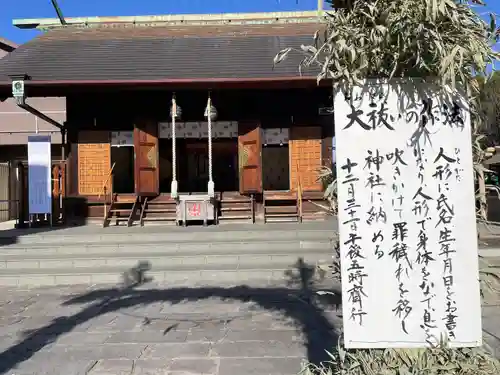 大祓いの作法
人形に氏名生年月日をお書き
ひとがた
になり人形で身体をなで息を
吹きかけて罪穢れを移し
神社に納める
十二月三十日午後五時齋行